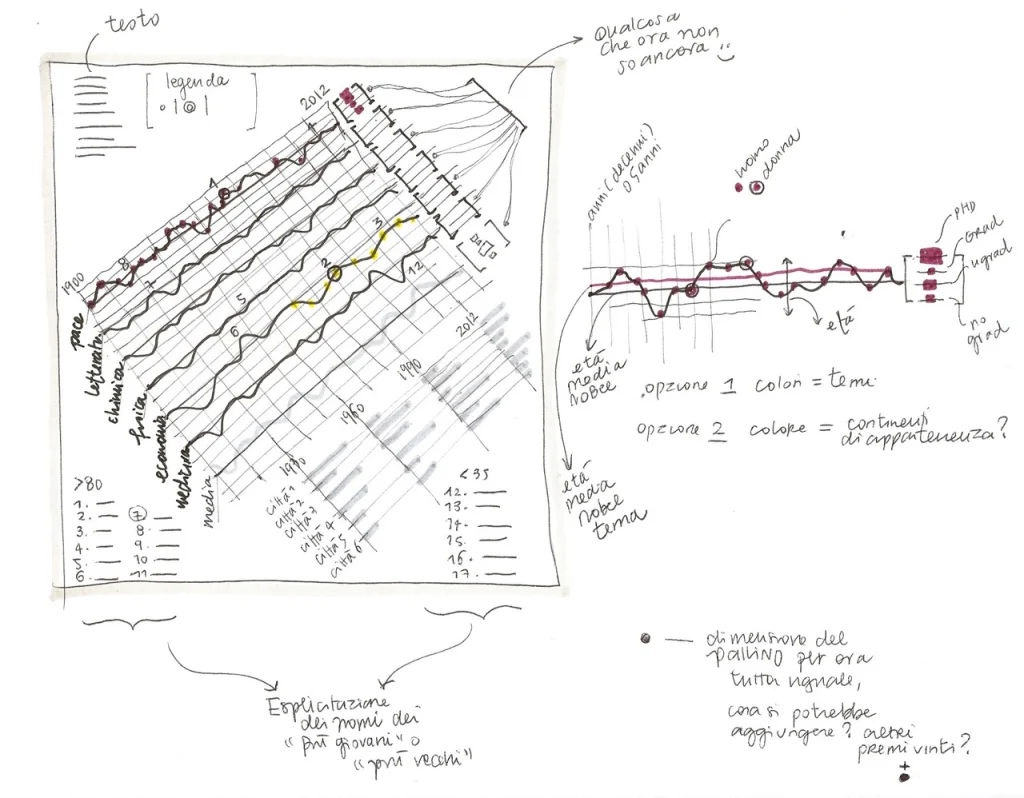 testo
Qualcosa
che ora non
so ancora
legenda
2012
1900
1
8
7
5
6
2
3
12
pace
letteratura
chimica
fisica
economia
medicina
media
2012
1990
1960
1930
città 1
città 2
città 3
città 4
città 5
città 6
>80
1.
2.
3.
4.
5.
6.
7
8.
9.
10.
11.
<35
12.
13.
14.
15.
16.
17.
Esplicitazione
dei nomi dei
"più giovani" o
"più vecchi"
anni (decenni)
o 5 anni
uomo
donna
PHD
Grad
ugrad
no
grad
età
età
media
nobel
età
media
nobel
tema
.opzione 1 colori = temi
opzione 2 colore = continenti
di appartenenza?
dimensione del
pallino per ora
tutta uguale,
cosa si potrebbe
aggiungere? altri
premi vinti?
+